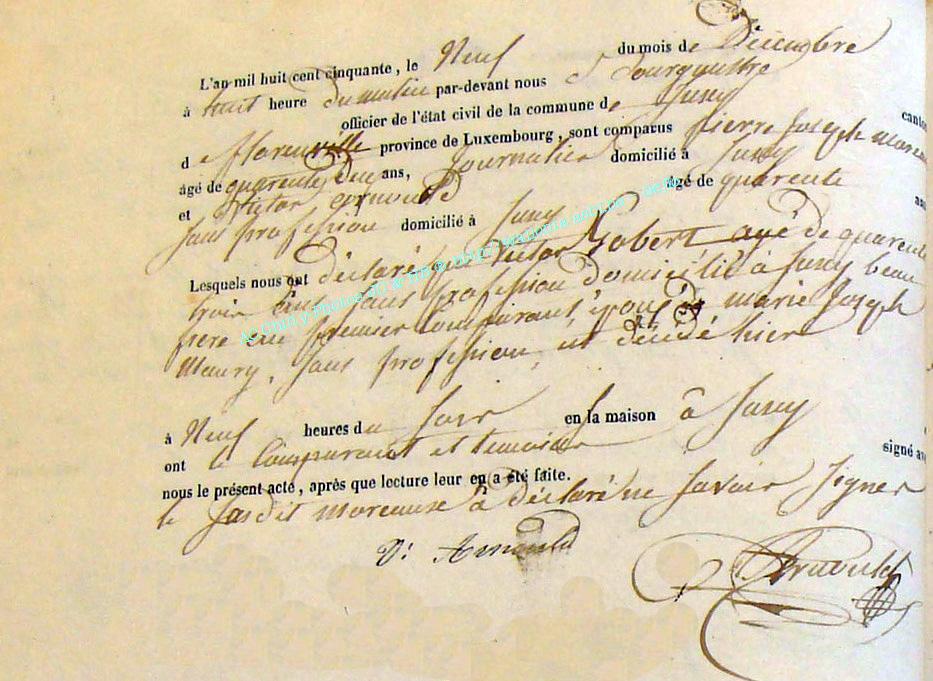 L'an mil huit cent cinquante, le Neuf du mois de Décembre
à huit heure du matin par-devant nous
officier de l'état civil de la commune de Jusny
d e florenville province de Luxembourg, sont comparus pierre Joseph
âgé de quarente deu ans, Journalier domicilié à Jusny
et Victor arnould âgé de quarente
sans profession domicilié à Jusny
Lesquels nous ont déclaré que Victor Gobert agé de quarente
trois ans sans profession domicilié à Jusny beau
frere au premier Comparant époux de marie Joseph
Maury, sans profession, est décédé hier
à Neuf heures du soir en la maison à Jusny
ont le Comparant et temoins signé
nous le présent acte, après que lecture leur en a été faite.
le susdit moreaux à déclaré ne savoir signer
V: Arnould